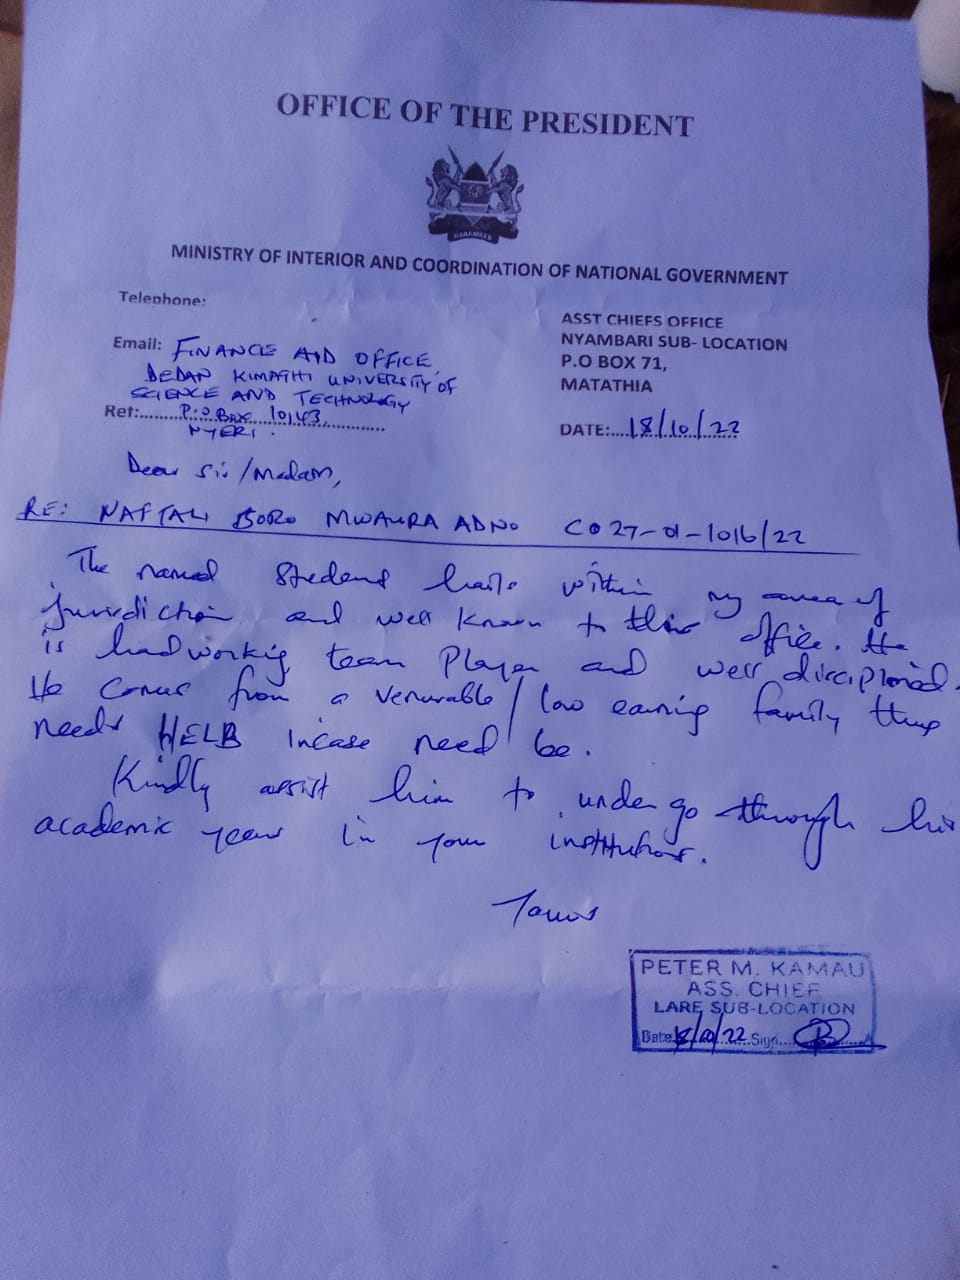 OFFICE OF THE PRESIDENT
HARAMBEE
MINISTRY OF INTERIOR AND COORDINATION OF NATIONAL GOVERNMENT
Telephone:
Email: FINANCE AID OFFICE
DEDAN KIMATHI UNIVERSITY OF
SCIENCE AND TECHNOLOGY
Ref:........P.O BOX 10143,...............
NYERI.
ASST CHIEFS OFFICE
NYAMBARI SUB- LOCATION
P.O BOX 71,
MATATHIA
DATE:....18/10/22
Dear Sir/Madam,
RE: NAFTALI BORO MWAURA ADNO C027-01-1016/22
The named student hails within my area of
jurisdiction and well known to this office. He
is hadworking team player and well disciplined.
He comes from a venurable/low earning family thus
needs HELB incase need be.
Kindly assist him to undergo through his
academic years in your institution.
Yours
PETER M. KAMAU
ASS. CHIEF
LARE SUB-LOCATION
Date 18/10/22 Sign.....